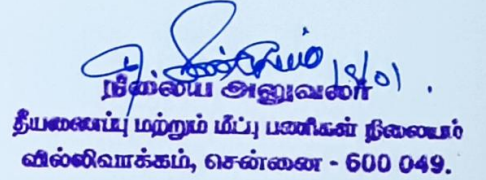 18/01.
நிலைய அலுவலர்
தீயணைப்பு மற்றும் மீட்பு பணிகள் நிலையம்
வில்லிவாக்கம், சென்னை - 600 049.